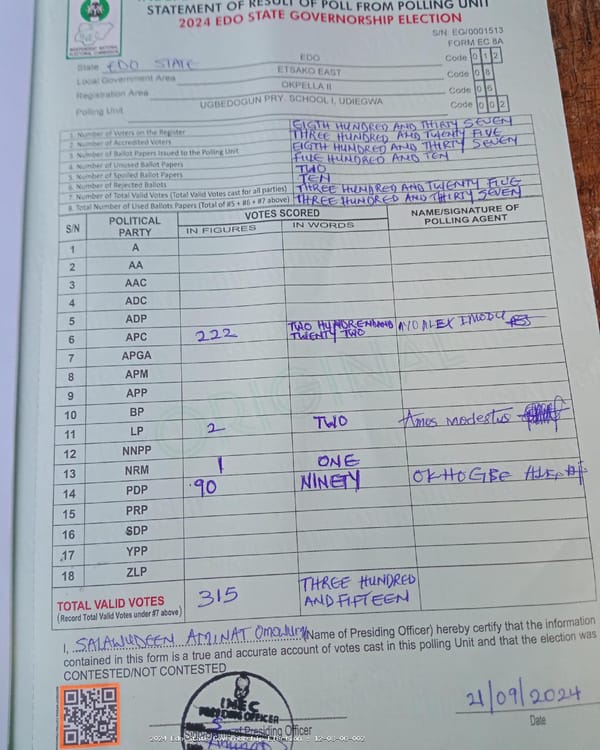 STATEMENT OF RESULT OF POLL FROM POLLING UNIT
2024 EDO STATE GOVERNORSHIP ELECTION
INDEPENDENT NATIONAL ELECTORAL COMMISSION
S/N: EG/0001513
FORM EC 8A
State EDO STATE EDO Code 0 1 2
Local Government Area ETSAKO EAST Code 0 8
Registration Area OKPELLA II Code 0 6
Polling Unit UGBEDOGUN PRY. SCHOOL I, UDIEGWA Code 0 0 2
1. Number of Voters on the Register EIGTH HUNDRED AND THIRTY SEVEN
2. Number of Accredited Voters THREE HUNDRED AND TWENTY FIVE
3. Number of Ballot Papers Issued to the Polling Unit EIGTH HUNDRED AND THIRTY SEVEN
4. Number of Unused Ballot Papers FIVE HUNDRED AND TEN
5. Number of Spoiled Ballot Papers TWO
6. Number of Rejected Ballots TEN
7. Number of Total Valid Votes (Total Valid Votes cast for all parties) THREE HUNDRED AND TWENTY FIVE
8. Total Number of Used Ballots Papers (Total of #5 + #6 + #7 above) THREE HUNDRED AND THIRTY SEVEN
S/N POLITICAL PARTY VOTES SCORED NAME/SIGNATURE OF POLLING AGENT
IN FIGURES IN WORDS
1 A
2 AA
3 AAC
4 ADC
5 ADP
6 APC 222 TWO HUNDREN AND TWENTY TWO AYO ALEX IMODU
7 APGA
8 APM
9 APP
10 BP
11 LP 2 TWO Amos modestus
12 NNPP
13 NRM 1 ONE
14 PDP 90 NINETY OKHOGBE
15 PRP
16 SDP
17 YPP
18 ZLP
TOTAL VALID VOTES 315 THREE HUNDRED AND FIFTEEN
(Record Total Valid Votes under #7 above)
ORIGINAL
I, SALAWUDEEN AMINAT (Name of Presiding Officer) hereby certify that the information
contained in this form is a true and accurate account of votes cast in this polling Unit and that the election was
CONTESTED/NOT CONTESTED
INEC
PRESIDING OFFICER
Signature of Presiding Officer
21/09/2024
Date